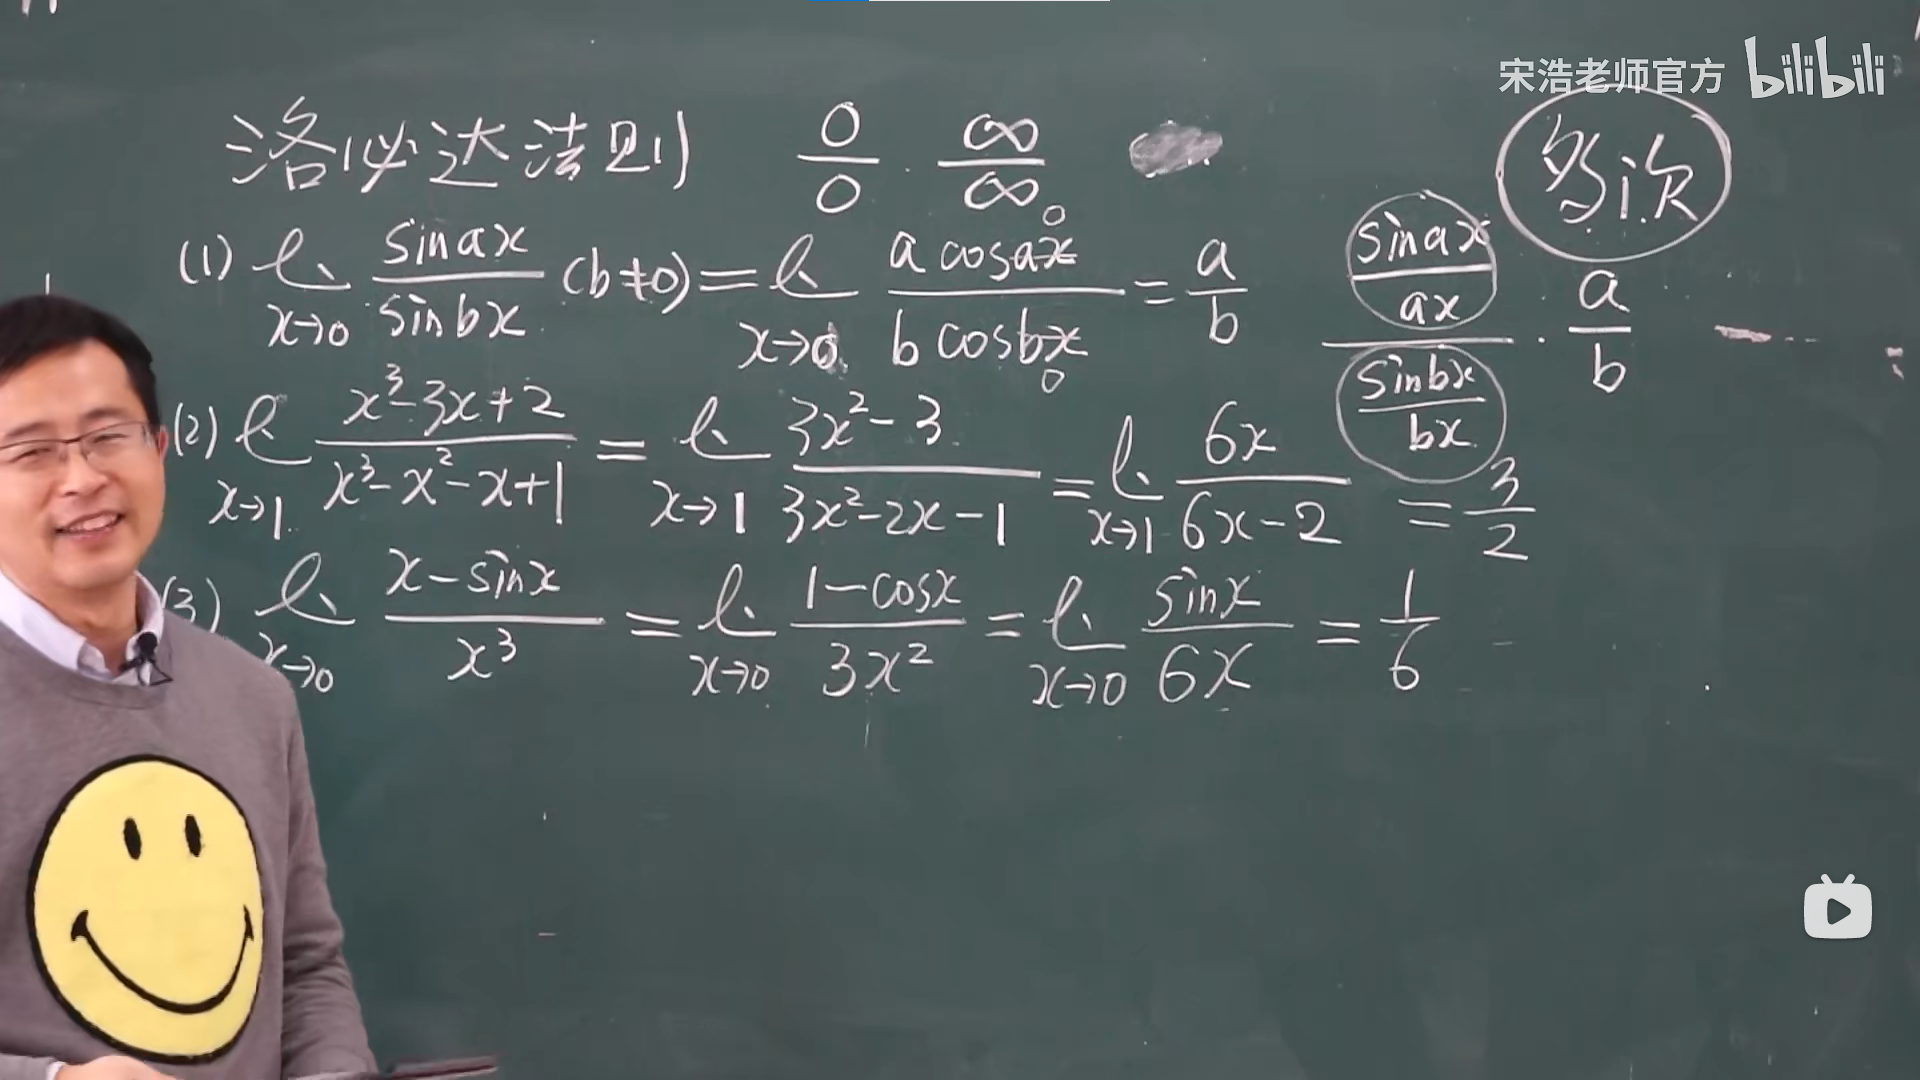 宋浩老师官方 bilibili
洛必达法则 0/0 . ∞/∞ 多次
(1) lim x→0 sinax/sinbx (b≠0) = lim x→0 a cosax/b cosbx = a/b
0
0
(sinax/ax)/(sinbx/bx) · a/b
(2) lim x→1 (x³-3x+2)/(x³-x²-x+1) = lim x→1 (3x²-3)/(3x²-2x-1) = lim x→1 6x/(6x-2) = 3/2
(3) lim x→0 (x-sinx)/x³ = lim x→0 (1-cosx)/3x² = lim x→0 sinx/6x = 1/6